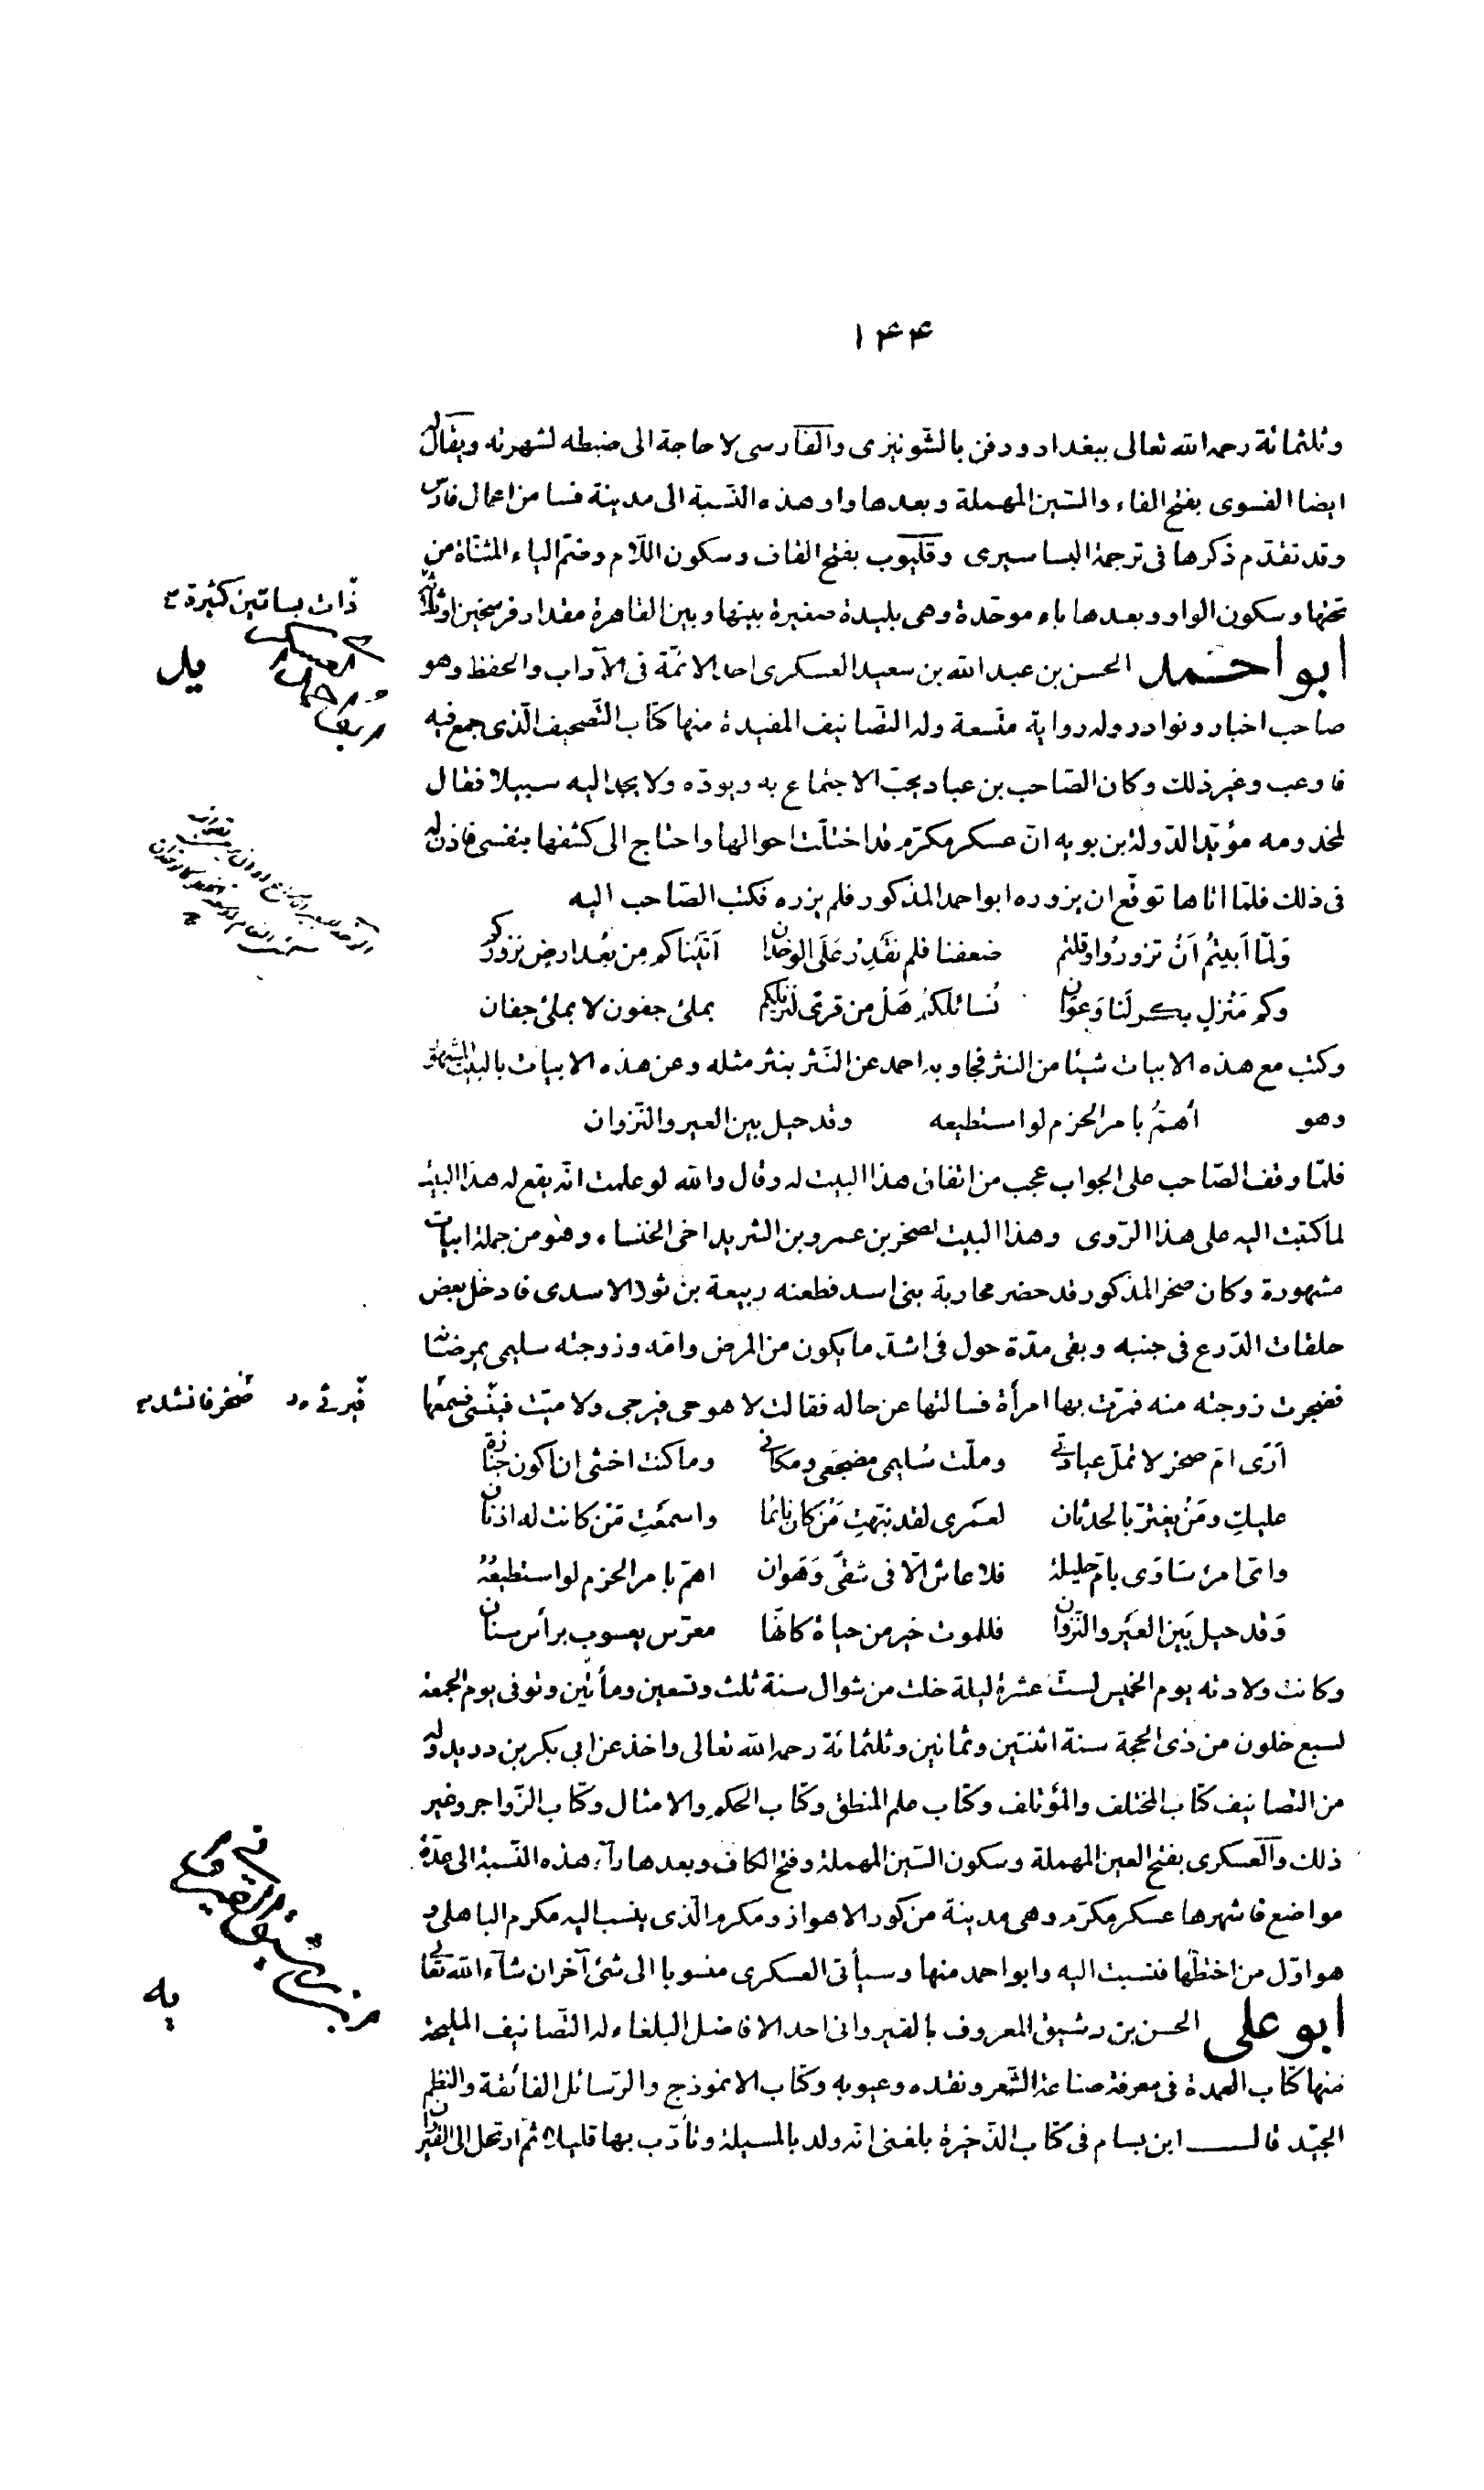 ١٤٤
وثلثمائة رحمه الله تعالى ببغداد ودفن بالشّونيزى والفارسى لا حاجة الى ضبطه لشهرته ويقال له
ايضا الفسوى بفتح الفاء والسّين المهملة وبعدها واو هذه النّسبة الى مدينة فسا من اعمال فارس
وقد تقدّم ذكرها فى ترجمة البساسيرى وقليوب بفتح القاف وسكون اللّام وضمّ الياء المثنّاة من
تحتها وسكون الواو وبعدها باء موحّدة وهى بليدة صغيرة بينها وبين القاهرة مقدار فرسخين او ثلاثة
ذات بساتين كثيرة
ابو احمد الحسن بن عبد الله بن سعيد العسكرى احد الائمّة فى الآداب والحفظ وهو
يد
صاحب اخبار ونوادر وله رواية متّسعة وله التّصانيف المفيدة منها كتاب التّصحيف الّذى جمع فيه
فاوعب وغير ذلك وكان الصّاحب بن عباد يحبّ الاجتماع به ويودّه ولا يجد اليه سبيلا فقال
لمخدومه مؤيّد الدّولة بن بويه انّ عسكر مكرّم قد اختلّت احوالها واحتاج الى كشفها بنفسى فاذن له
فى ذلك فلمّا اتاها توقّع ان يزوره ابو احمد المذكور فلم يزره فكتب الصّاحب اليه
وَلمّا اَبيتُم اَنْ تزورُوا وقلتم ضعفنا فلم نقدِر عَلَى الوخدان اَتَيْناكم مِن بُعد ارض نزوركم
وكم مَنْزلٍ بكر لَنا وَعوان نُسائلكُم هَلْ من قرًى لنزيلكم بملئ جفون لا بملئ جفان
وكتب مع هذه الابيات شيئا من النثر فجاوبه احمد عن النّثر بنثر مثله وعن هذه الابيات بالبيت المشهور
وهو أهمُّ بامر الحزم لو استطيعه وقد حيل بين العير والنّزوان
فلمّا وقف الصّاحب على الجواب عجب من اتفاق هذا البيت له وقال والله لو علمت انّه يقع له هذا البيت
لما كتبت اليه على هذا الرّوى وهذا البيت لصخر بن عمرو بن الشريد اخى الخنساء وهو من جملة ابيات
مشهورة وكان صخر المذكور قد حضر محاربة بنى اسد فطعنه ربيعة بن ثور الاسدى فادخل بعض
حلقات الدّرع فى جنبه وبقى مدّة حول فى اشدّ ما يكون من المرض وامّه وزوجته سليمى يمرضنا
فضجرت زوجته منه فمرّت بها امرأة فسالتها عن حاله فقالت لا هو حى فيرجى ولا ميّت فينسى فسمعها
صخر فانشد
اَرَى امّ صخر لا تملّ عيادتى وملّت سُليمى مضجعى ومكانى وما كنت اخشى ان اكون جنازة
عليكِ ومَنْ يغترّ بالحدثان لعمرى لقد نبّهتِ مَنْ كان نائما واسمعْتِ مَنْ كانت له اذنان
واىّ امرئ سَاوَى بامّ حليلة فلا عاش الّا فى شقًى وَهَوان اهمّ بامر الحزم لو استطيعُهُ
وَقد حيل بَين العَير والنّزوان فللموت خير من حياة كانّها معرّس يعسوب برأس سنان
وكانت ولادته يوم الخميس لستّ عشرة ليلة خلت من شوال سنة ثلث وتسعين ومأتين وتوفى يوم الجمعة
لسبع خلون من ذى الحجة سنة اثنتين وثمانين وثلثمائة رحمه الله تعالى واخذ عن ابى بكر بن دريد وله
من التصانيف كتاب المختلف والمؤتلف وكتاب علم المنطق وكتاب الحكم والامثال وكتاب الزّواجر وغير
ذلك والعسكرى بفتح العين المهملة وسكون السّين المهملة وفتح الكاف وبعدها راء هذه النّسبة الى عدّة
مواضع فاشهرها عسكر مكرّم وهى مدينة من كور الاهواز ومكرم الّذى ينسب اليه مكرم الباهلى و
هو اوّل من اختطّها فنسبت اليه وابو احمد منها وسيأتى العسكرى منسوبا الى شئ آخر ان شآء الله تعالى
يه
ابو على الحسن بن رشيق المعروف بالقيروانى احد الافاضل البلغاء له التّصانيف المليحة
منها كتاب العمدة فى معرفة صناعة الشّعر ونقده وعيوبه وكتاب الانموذج والرّسائل الفائقة والنظم
الجيّد قال ابن بسام فى كتاب الذّخيرة بلغنى انّه ولد بالمسيلة وتأدّب بها قليلا ثمّ ارتحل الى القيروان